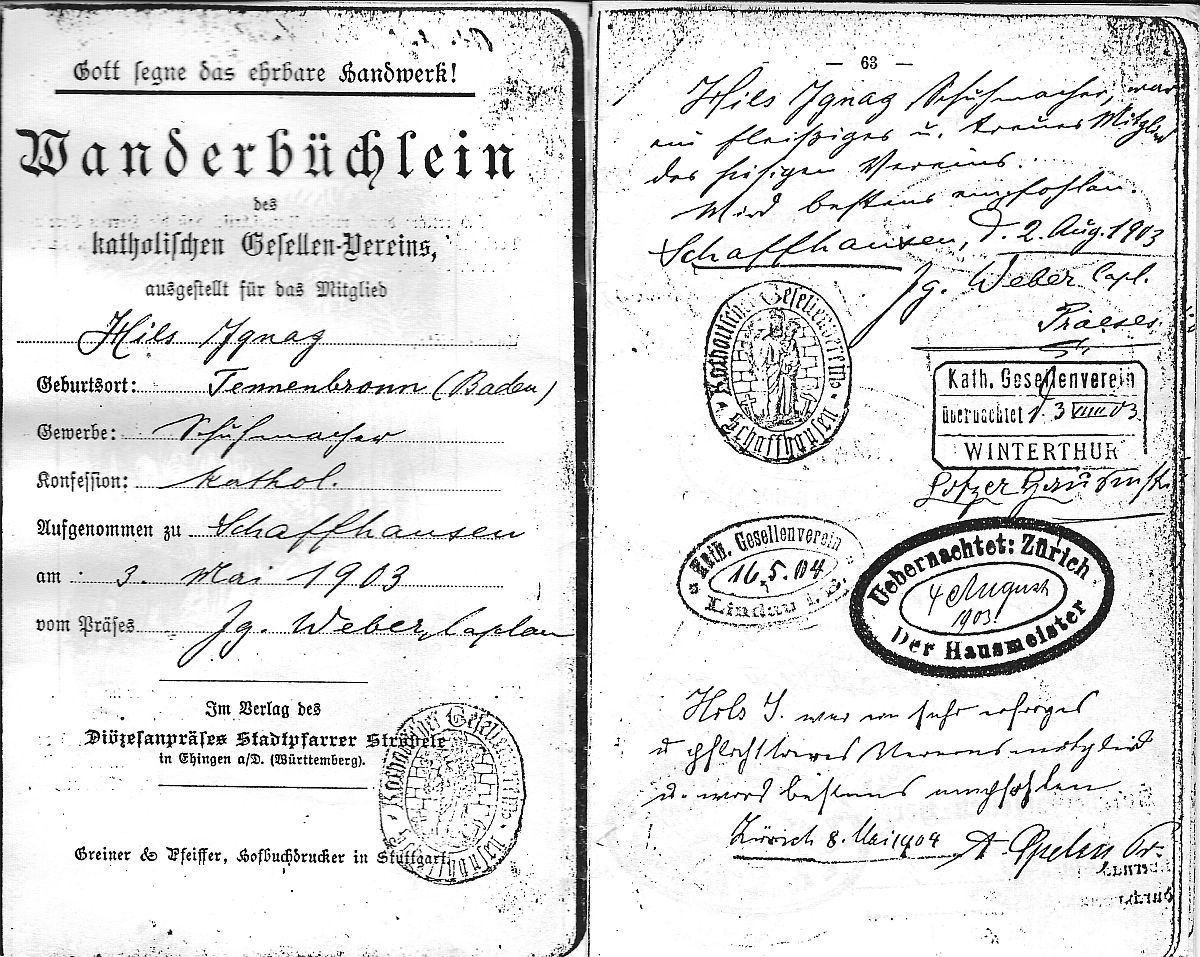 Gott segne das ehrbare Handwerk!
Wanderbüchlein
des
katholischen Gesellen-Vereins,
ausgestellt für das Mitglied
Hils Ignaz
Geburtsort: Tennenbronn (Baden)
Gewerbe: Schuhmacher
Konfession: kathol.
Aufgenommen zu Schaffhausen
am 3. Mai 1903
vom Präses Jg. Weber, Caplan
Im Verlag des
Diözesanpräses Stadtpfarrer Ströbele
in Ehingen a/D. (Württemberg).
Greiner & Pfeiffer, Hofbuchdrucker in Stuttgart.
Katholischer Gesellenverein
— 63 —
Hils Ignaz Schuhmacher, war
ein fleißiges u. treues Mitglied
des hiesigen Vereins.
Wird bestens empfohlen.
Schaffhausen, d. 2. Aug. 1903
Jg. Weber Capl.
Praeses
Katholischer Gesellenverein
Schaffhausen
Kath. Gesellenverein
übernachtet d. 3 VIII 03
WINTERTHUR
Kath. Gesellenverein
16.5.04
Lindau i. B.
Uebernachtet: Zürich
4 August
1903
Der Hausmeister
Hils I. war ein sehr eifriges
u. pflichttreues Vereinsmitglied
u. wird bestens empfohlen
Zürich 8. Mai 1904